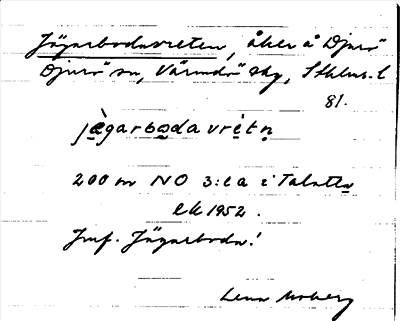 Jägarbodavreten, åker å Djurö
Djurö sn, Värmdö skg, Sthlms. l
81.
jä̀garbodavrètn̥
200 m NO 3:ea i Talatta
ek 1952.
Jmf. Jägarboda!
Lena Moberg